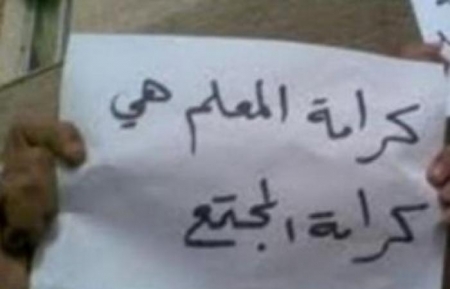 كرامة المعلم هي
كرامة المجتمع